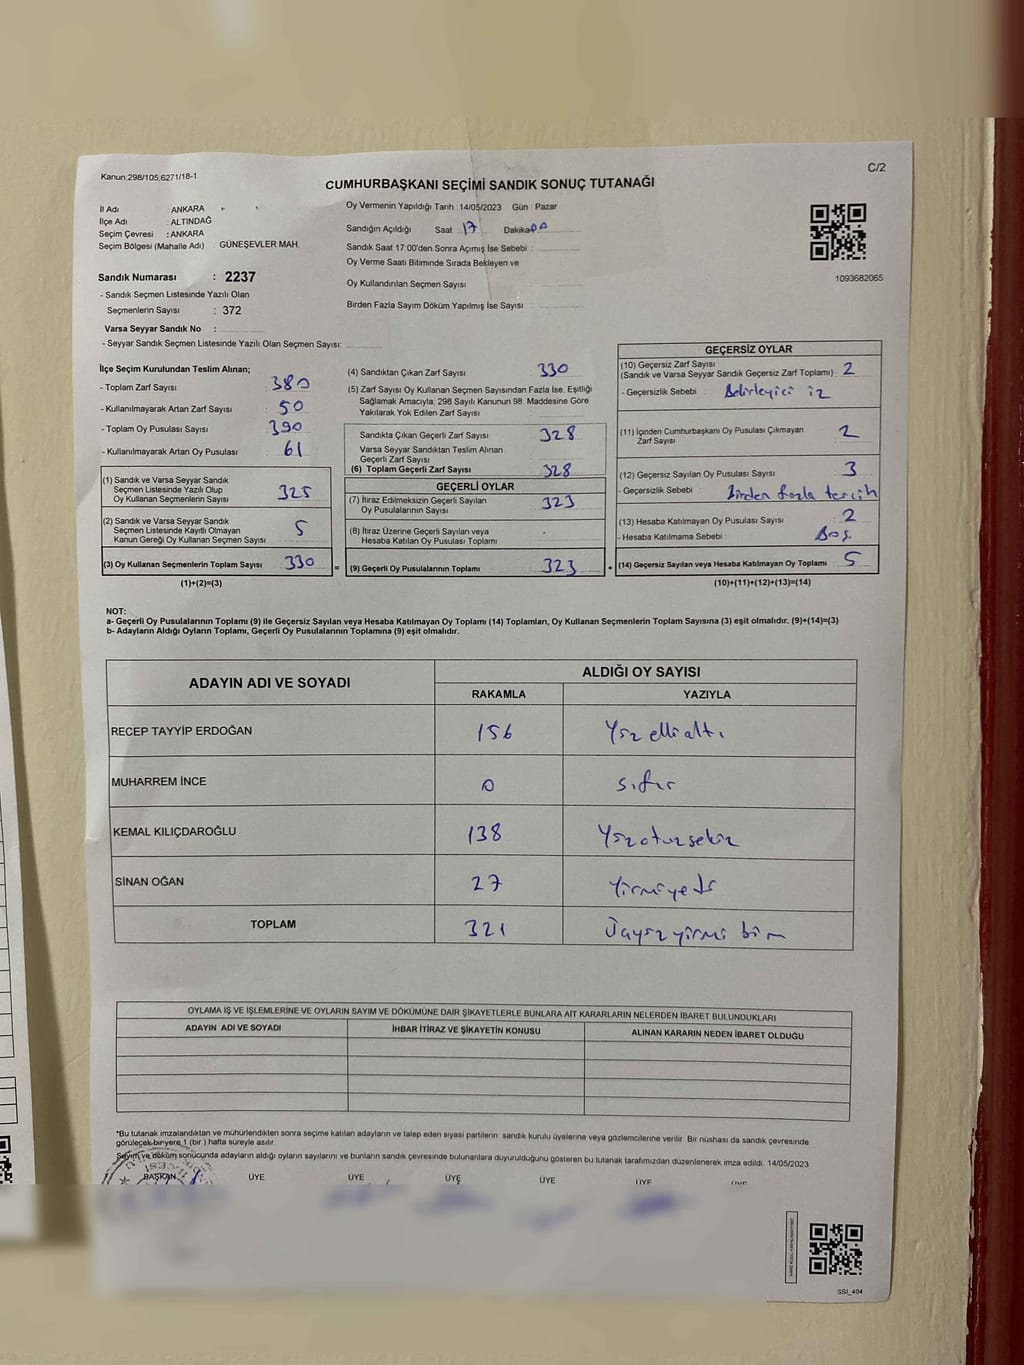 Kanun;298/105,6271/18-1
C/2
CUMHURBAŞKANI SEÇİMİ SANDIK SONUÇ TUTANAĞI
İl Adı : ANKARA
İlçe Adı : ALTINDAĞ
Seçim Çevresi : ANKARA
Seçim Bölgesi (Mahalle Adı) GÜNEŞEVLER MAH.
Sandık Numarası : 2237
- Sandık Seçmen Listesinde Yazılı Olan
Seçmenlerin Sayısı : 372
Varsa Seyyar Sandık No :
- Seyyar Sandık Seçmen Listesinde Yazılı Olan Seçmen Sayısı:
Oy Vermenin Yapıldığı Tarih :14/05/2023 Gün : Pazar
Sandığın Açıldığı Saat : 17 Dakika 00
Sandık Saat 17:00'den Sonra Açımış İse Sebebi :
Oy Verme Saati Bitiminde Sırada Bekleyen ve
Oy Kullandırılan Seçmen Sayısı
Birden Fazla Sayım Döküm Yapılmış İse Sayısı :
1093682065
İlçe Seçim Kurulundan Teslim Alınan;
- Toplam Zarf Sayısı : 380
- Kullanılmayarak Artan Zarf Sayısı : 50
- Toplam Oy Pusulası Sayısı : 390
- Kullanılmayarak Artan Oy Pusulası : 61
(1) Sandık ve Varsa Seyyar Sandık
Seçmen Listesinde Yazılı Olup
Oy Kullanan Seçmenlerin Sayısı : 325
(2) Sandık ve Varsa Seyyar Sandık
Seçmen Listesinde Kayıtlı Olmayan
Kanun Gereği Oy Kullanan Seçmen Sayısı : 5
(3) Oy Kullanan Seçmenlerin Toplam Sayısı : 330
(1)+(2)=(3)
(4) Sandıktan Çıkan Zarf Sayısı : 330
(5) Zarf Sayısı Oy Kullanan Seçmen Sayısından Fazla İse, Eşitliği
Sağlamak Amacıyla; 298 Sayılı Kanunun 98. Maddesine Göre
Yakılarak Yok Edilen Zarf Sayısı :
Sandıkta Çıkan Geçerli Zarf Sayısı : 328
Varsa Seyyar Sandıktan Teslim Alınan
Geçerli Zarf Sayısı :
(6) Toplam Geçerli Zarf Sayısı : 328
GEÇERLİ OYLAR
(7) İtiraz Edilmeksizin Geçerli Sayılan
Oy Pusulalarının Sayısı : 323
(8) İtiraz Üzerine Geçerli Sayılan veya
Hesaba Katılan Oy Pusulası Toplamı
= (9) Geçerli Oy Pusulalarının Toplamı : 323 +
GEÇERSİZ OYLAR
(10) Geçersiz Zarf Sayısı
(Sandık ve Varsa Seyyar Sandık Geçersiz Zarf Toplamı) : 2
- Geçersizlik Sebebi : Belirleyici iz
(11) İçinden Cumhurbaşkanı Oy Pusulası Çıkmayan
Zarf Sayısı : 2
(12) Geçersiz Sayılan Oy Pusulası Sayısı : 3
- Geçersizlik Sebebi : Birden fazla tercih
(13) Hesaba Katılmayan Oy Pusulası Sayısı : 2
- Hesaba Katılmama Sebebi : Boş.
(14) Geçersiz Sayılan veya Hesaba Katılmayan Oy Toplamı : 5
(10)+(11)+(12)+(13)=(14)
NOT:
a- Geçerli Oy Pusulalarının Toplamı (9) ile Geçersiz Sayılan veya Hesaba Katılmayan Oy Toplamı (14) Toplamları, Oy Kullanan Seçmenlerin Toplam Sayısına (3) eşit olmalıdır. (9)+(14)=(3)
b- Adayların Aldığı Oyların Toplamı, Geçerli Oy Pusulalarının Toplamına (9) eşit olmalıdır.
ADAYIN ADI VE SOYADI ALDIĞI OY SAYISI
RAKAMLA YAZIYLA
RECEP TAYYİP ERDOĞAN 156 Yüz elli altı
MUHARREM İNCE 0 sıfır
KEMAL KILIÇDAROĞLU 138 Yüz otuz sekiz
SİNAN OĞAN 27 Yirmi yedi
TOPLAM 321 Üçyüz yirmi bir
OYLAMA İŞ VE İŞLEMLERİNE VE OYLARIN SAYIM VE DÖKÜMÜNE DAİR ŞİKAYETLERLE BUNLARA AİT KARARLARIN NELERDEN İBARET BULUNDUKLARI
ADAYIN ADI VE SOYADI İHBAR İTİRAZ VE ŞİKAYETİN KONUSU ALINAN KARARIN NEDEN İBARET OLDUĞU
*Bu tutanak imzalandıktan ve mühürlendikten sonra seçime katılan adayların ve talep eden siyasi partilerin sandık kurulu üyelerine veya gözlemcilerine verilir. Bir nüshası da sandık çevresinde
görülecek bir yere 1 (bir ) hafta süreyle asılır.
Sayım ve döküm sonucunda adayların aldığı oyların sayılarını ve bunların sandık çevresinde bulunanlara duyurulduğunu gösteren bu tutanak tarafımızdan düzenlenerek imza edildi. 14/05/2023
BAŞKAN ÜYE ÜYE ÜYE ÜYE ÜYE ÜYE
SSI_404